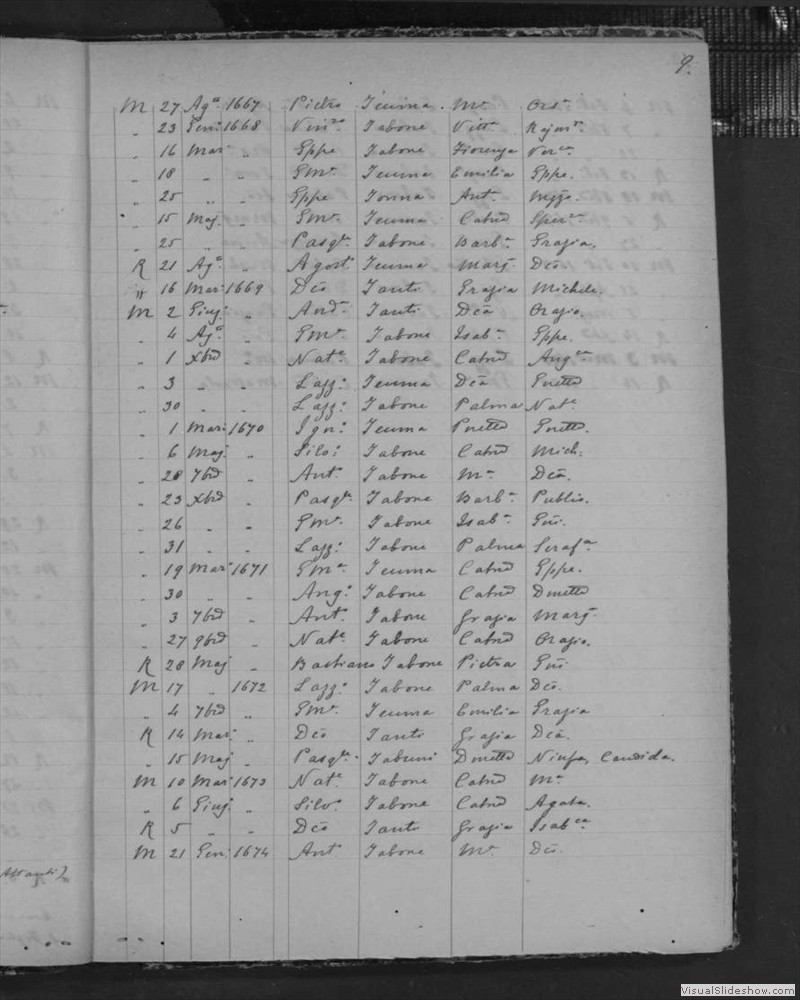 9.
M 27 Agᵃ 1667 Pietro Teuma Mᵃ Orsᵃ
" 23 Gen: 1668 Vinᶻᵒ Tabone Vittᵃ Rajmᵈᵒ
" 16 Mar: " Gppe Tabone Fiorenza Verᶜᵃ
" 18 " " Gmᵃ Teuma Emilia Gppe.
" 25 " " Gppe Tonna Antᵃ
" 15 Maj " Gmᵒ Teuma Catnᵃ Sperᶻᵃ
" 25 " " Pasqˡᵉ Tabone Barbᵃ Grazia.
R 21 Agᵃ " Agostᵒ Teuma Margᵗᵃ Dcō
" 16 Mar: 1669 Dcō Tanti Grazia Michele.
M 2 Giuj " Andᵃ Tanti Dcā Orazio.
" 4 Agᵃ " Gmᵒ Tabone Isabᵃ Gppe.
" 1 Xbrē " Natᵉ Tabone Catnᵃ Angᶜᵃ
" 3 " " Lazzᵒ Teuma Dcā Gnetta
" 30 " " Lazzᵒ Tabone Palma Natᵉ
" 1 Mar: 1670 Ignᵒ Teuma Pnetta Gnetta.
" 6 Maj " Silvᵒ Tabone Catnᵃ Mich:
" 28 7brē " Antᵒ Tabone Mᵃ Dcā.
" 23 Xbrē " Pasqˡᵉ Tabone Barbᵃ Publio.
" 26 " " Gmᵒ Tabone Isabᵃ Gio.
" 31 " " Lazzᵒ Tabone Palma Serafᵃ
" 19 Mar: 1671 Gmᵃ Teuma Catnᵃ Gppe.
" 30 " " Angᵒ Tabone Catnᵃ Dnetta
" 3 7brē " Antᵒ Tabone Grazia Margᵗᵃ
" 27 9brē " Natᵉ Tabone Catnᵃ Orazio.
R 28 Maj " Bastiano Tabone Pietra Gio
M 17 " 1672 Lazzᵒ Tabone Palma Dcō.
" 4 7brē " Gmᵒ Teuma Emilia Grazia
R 14 Mar: " Dcō Tanti Grazia Dcā.
" 15 Maj " Pasqˡᵉ Tabuni Dnetta Ninfa, Candida.
M 10 Mar: 1673 Natᵉ Tabone Catnᵃ Mᵃ
" 6 Giuj " Silvᵒ Tabone Catnᵃ Agata.
R 5 " " Dcō Tanti Grazia Isabᶜᵃ
M 21 Gen: 1674 Antᵒ Tabone Mᵃ Dcō.
VisualSlideshow.com